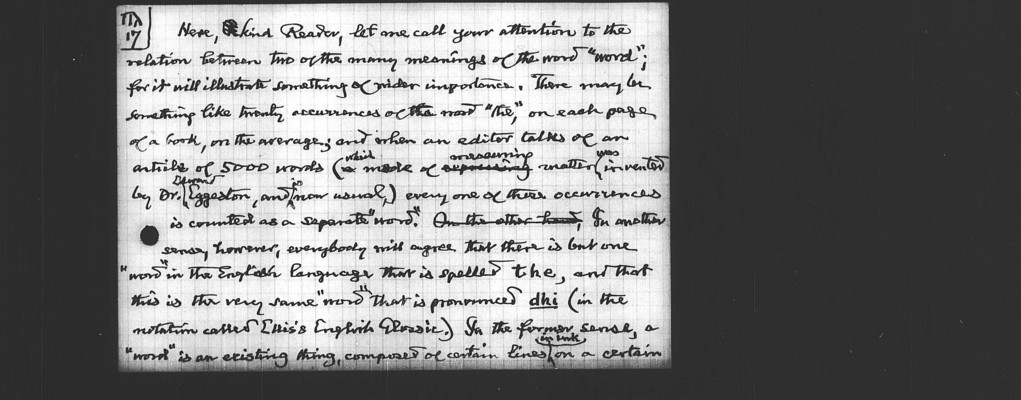 17
Here, kind Reader, let me call your attention to the
relation between two of the many meanings of the word "word";
for it will illustrate something of wider importance. There may be
something like twenty occurrences of the word "the," on each page
of a book, on the average; and when an editor talks of an
article of 5000 words (which mode of measuring matter was invented
by Dr. Edward Eggleston, and is now usual,) every one of these occurrences
is counted as a separate "word". On the other hand, In another
sense, however, everybody will agree that there is but one
"word" in the English language that is spelled the, and that
this is the very same "word" that is pronounced dhi (in the
notation called Ellis's English Glossic.) In the former sense, a
"word" is an existing thing, composed of certain lines in ink on a certain